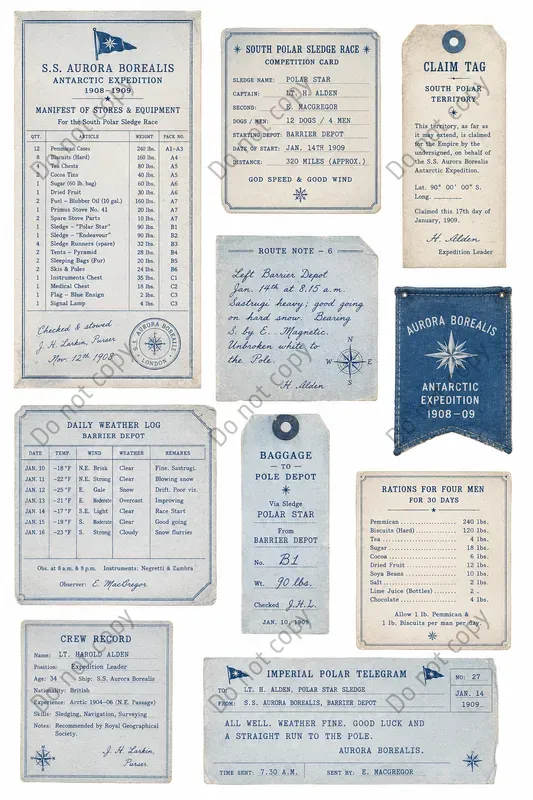 S.S. AURORA BOREALIS
ANTARCTIC EXPEDITION
1908–1909
MANIFEST OF STORES & EQUIPMENT
For the South Polar Sledge Race
QTY. ARTICLE WEIGHT PACK NO.
12 Pemmican Cases 240 lbs. A1–A3
8 Biscuits (Hard) 160 lbs. A4
2 Tea Chests 80 lbs. A5
2 Cocoa Tins 40 lbs. A5
1 Sugar (60 lb. bag) 60 lbs. A6
1 Dried Fruit 30 lbs. A6
2 Fuel – Blubber Oil (10 gal.) 160 lbs. A7
1 Primus Stove No. 41 20 lbs. A7
2 Spare Stove Parts 10 lbs. A7
1 Sledge – "Polar Star" 90 lbs. B1
1 Sledge – "Endeavour" 90 lbs. B2
4 Sledge Runners (spare) 32 lbs. B3
2 Tents – Pyramid 28 lbs. B4
4 Sleeping Bags (Fur) 20 lbs. B5
2 Skis & Poles 24 lbs. B6
1 Instruments Chest 35 lbs. C1
1 Medical Chest 18 lbs. C2
1 Flag – Blue Ensign 2 lbs. C3
1 Signal Lamp 4 lbs. C3
Checked & stowed
J. H. Larkin, Purser
Nov. 12th 1908
S.S. AURORA BOREALIS
LONDON
SOUTH POLAR SLEDGE RACE
COMPETITION CARD
SLEDGE NAME: POLAR STAR
CAPTAIN: LT. H. ALDEN
SECOND: E. MACGREGOR
DOGS / MEN: 12 DOGS / 4 MEN
STARTING DEPOT: BARRIER DEPOT
DATE OF START: JAN. 14TH 1909
DISTANCE: 320 MILES (APPROX.)
GOD SPEED & GOOD WIND
CLAIM TAG
SOUTH POLAR
TERRITORY
This territory, as far as
it may extend, is claimed
for the Empire by the
undersigned, on behalf of
the S.S. Aurora Borealis
Antarctic Expedition.
Lat. 90° 00' 00" S.
Long.
Claimed this 17th day of
January, 1909.
H. Alden
Expedition Leader
ROUTE NOTE – 6
Left Barrier Depot
Jan. 14th at 8.15 a.m.
Sastrugi heavy; good going
on hard snow. Bearing
S. by E. Magnetic.
Unbroken white to
the Pole.
H. Alden
N
W E
S
AURORA BOREALIS
ANTARCTIC
EXPEDITION
1908–09
DAILY WEATHER LOG
BARRIER DEPOT
DATE TEMP. WIND WEATHER REMARKS
JAN. 10 –18 °F N.E. Brisk Clear Fine. Sastrugi.
JAN. 11 –22 °F N.E. Strong Clear Blowing snow
JAN. 12 –25 °F E. Gale Snow Drift. Poor viz.
JAN. 13 –21 °F E. Moderate Overcast Improving
JAN. 14 –17 °F S.E. Light Clear Race Start
JAN. 15 –19 °F S. Moderate Clear Good going
JAN. 16 –23 °F S. Strong Cloudy Snow flurries
Obs. at 8 a.m. & 8 p.m. Instruments: Negretti & Zambra
Observer: E. MacGregor
BAGGAGE
– TO –
POLE DEPOT
Via Sledge
POLAR STAR
From
BARRIER DEPOT
No. B1
Wt. 90 lbs.
Checked J.H.L.
JAN. 10, 1909
RATIONS FOR FOUR MEN
FOR 30 DAYS
Pemmican 240 lbs.
Biscuits (Hard) 120 lbs.
Tea 4 lbs.
Sugar 18 lbs.
Cocoa 6 lbs.
Dried Fruit 12 lbs.
Soya Beans 10 lbs.
Salt 2 lbs.
Lime Juice (Bottles) 2
Chocolate 4 lbs.
Allow 1 lb. Pemmican &
1 lb. Biscuits per man per day.
CREW RECORD
Name: LT. HAROLD ALDEN
Position: Expedition Leader
Age: 34 Ship: S.S. Aurora Borealis
Nationality: British
Experience: Arctic 1904–06 (N.E. Passage)
Skills: Sledging, Navigation, Surveying
Notes: Recommended by Royal Geographical
Society.
J. H. Larkin,
Purser.
IMPERIAL POLAR TELEGRAM
NO: 27
TO: LT. H. ALDEN, POLAR STAR SLEDGE
JAN. 14
FROM: S.S. AURORA BOREALIS, BARRIER DEPOT
1909
ALL WELL. WEATHER FINE. GOOD LUCK AND
A STRAIGHT RUN TO THE POLE.
AURORA BOREALIS.
TIME SENT: 7.30 A.M. SENT BY: E. MACGREGOR
Do not copy
Do not copy
Do not copy
Do not copy
Do not copy
Do not copy
Do not copy
Do not copy
Do not copy
Do not copy
Do not copy
Do not copy